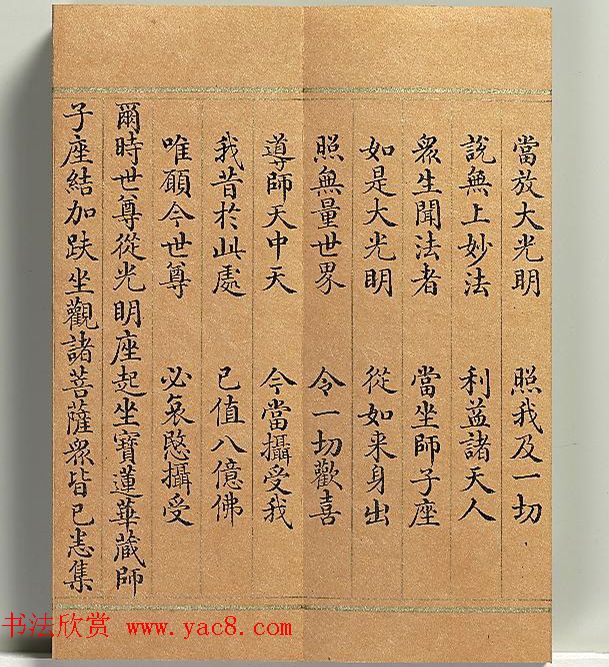 當放大光明　照我及一切
說無上妙法　利益諸天人
眾生聞法者　當坐師子座
如是大光明　從如来身出
照無量世界　令一切歡喜
導師天中天　今當攝受我
我昔於此處　已值八億佛
唯願今世尊　必哀愍攝受
爾時世尊從光明座起坐寶蓮華藏師
子座結加趺坐觀諸菩薩眾皆已悉集
书法欣赏 www.yac8.com